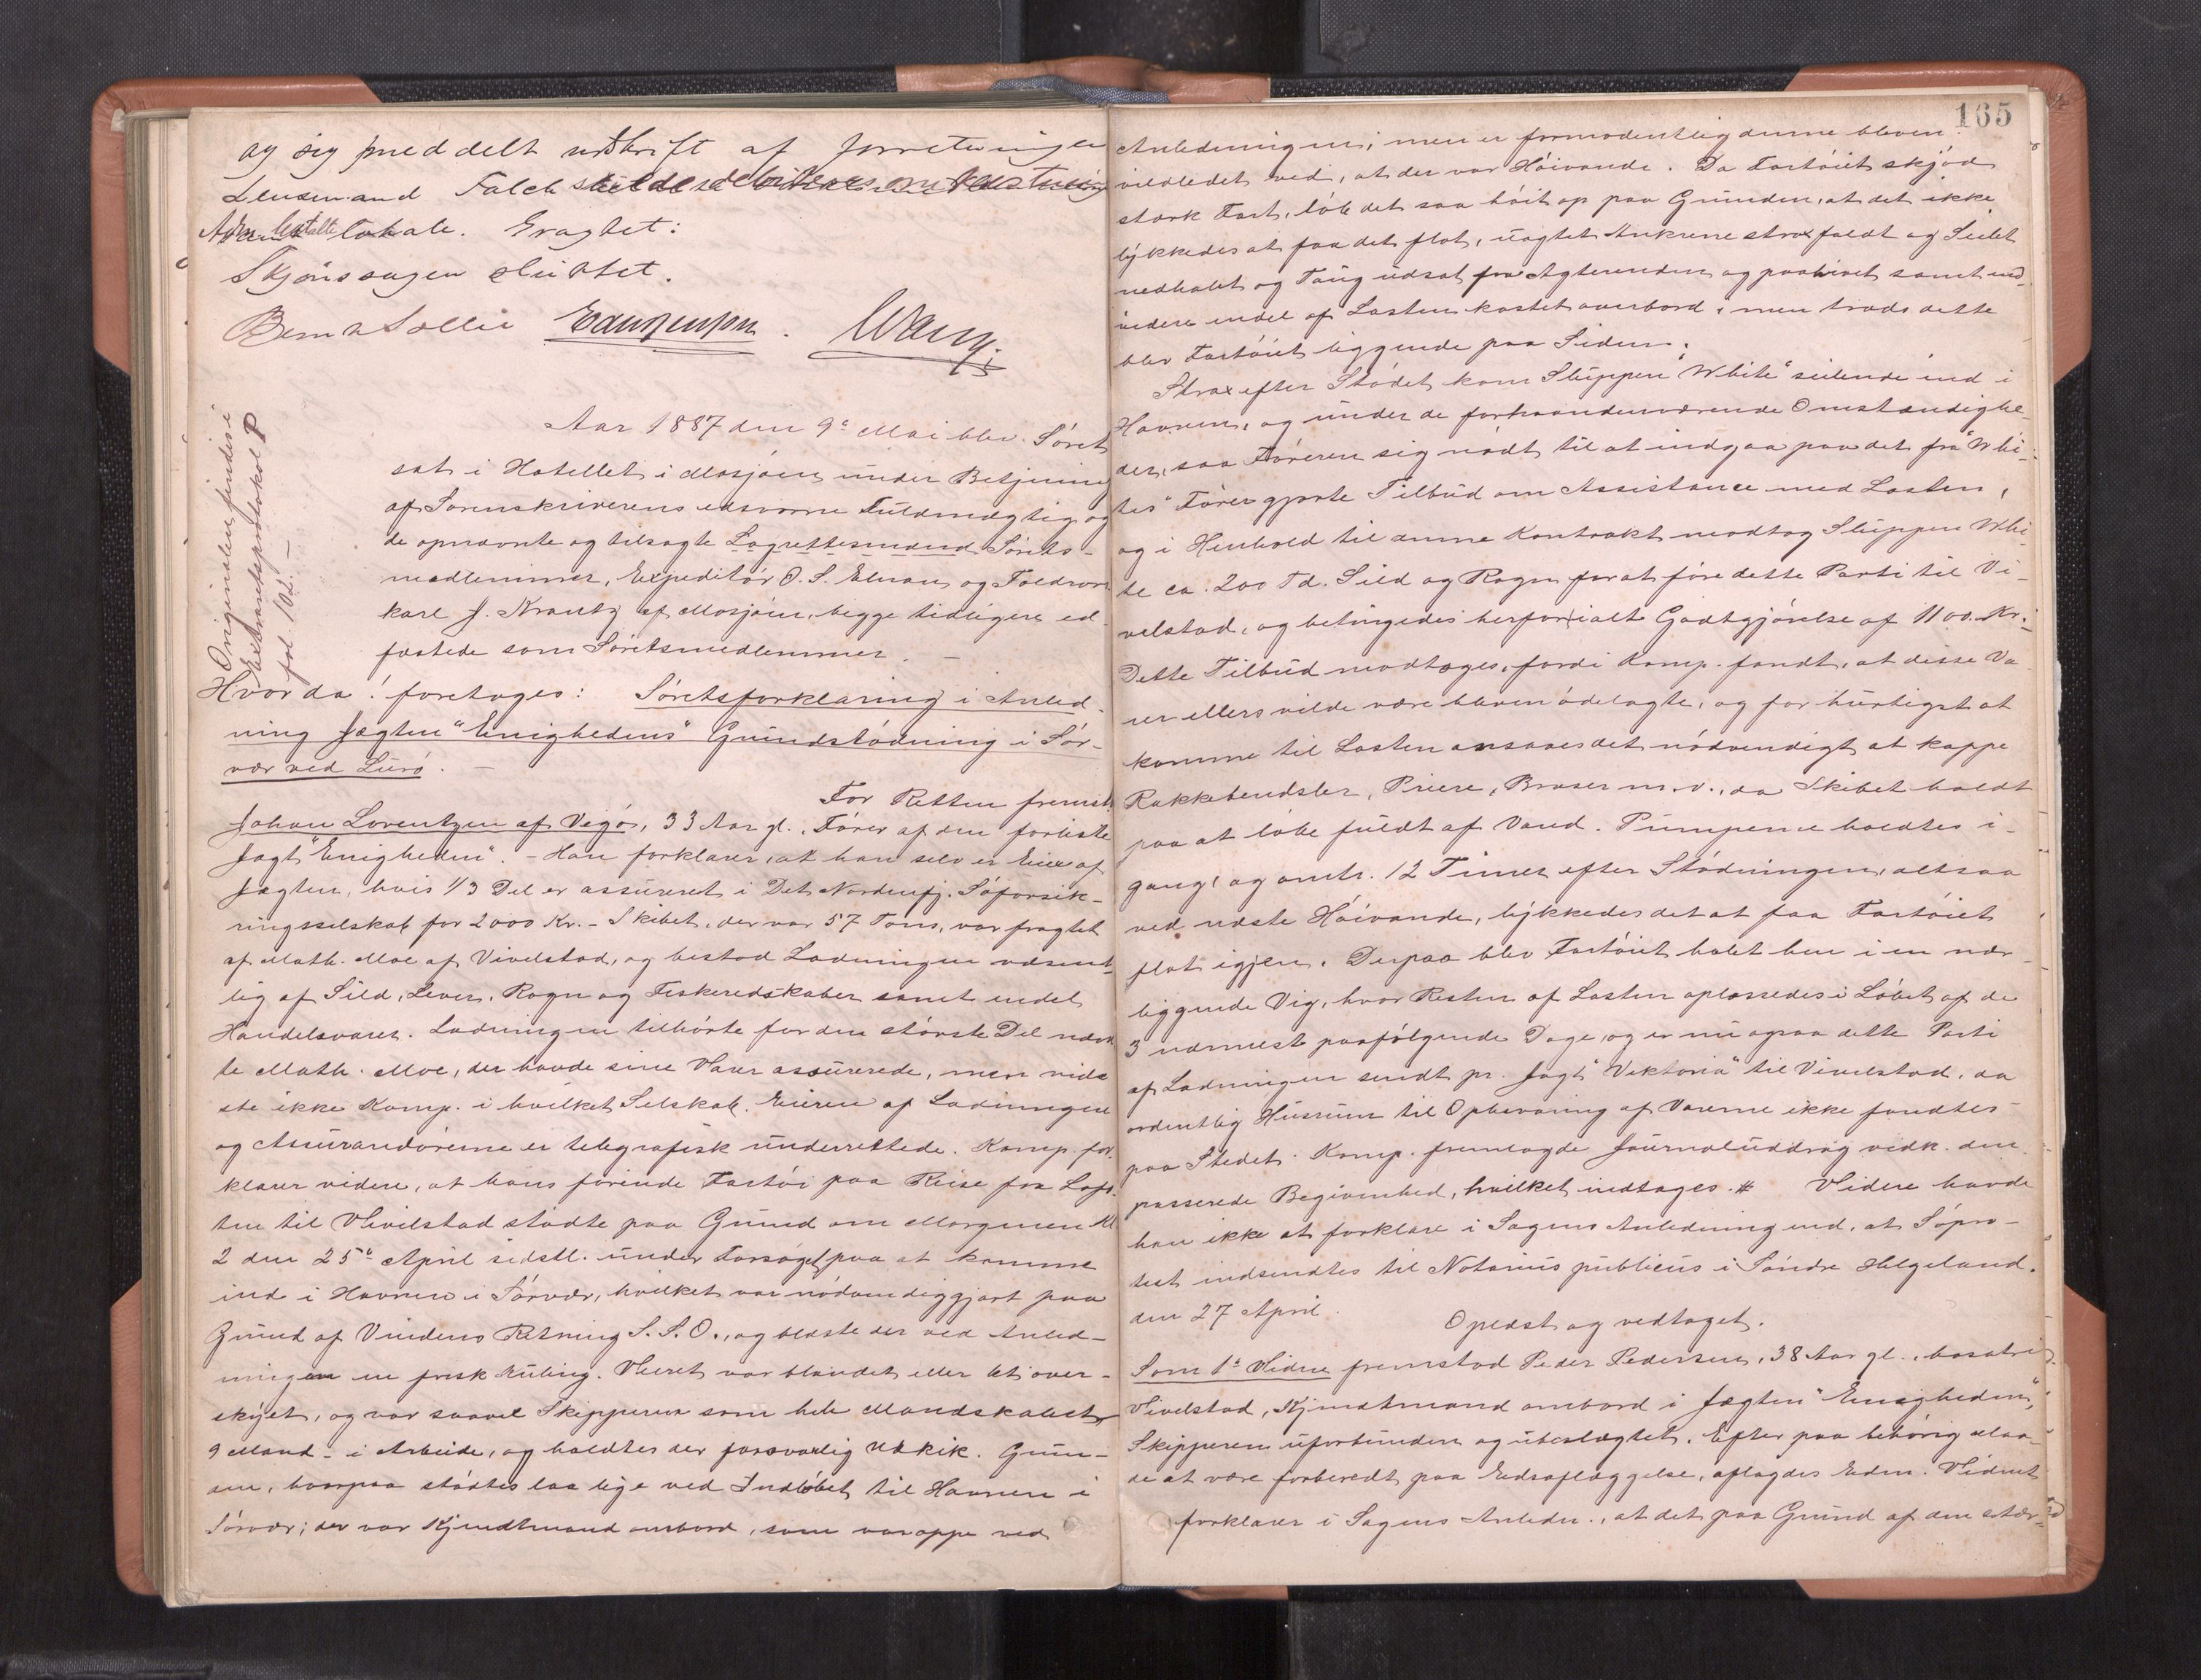 og sig meddelt udskrift af forretningen
Lensmand Falch
lokale. Eragtet:
Skjønssagen sluttet.
Bernt Sollie
Originalen findes i
Extraretsprotokol P
fol. 102. –
Aar 1887 den 9e Mai blev Söret
sat i Hotellet i Mosjøen under Betjening
af Sorenskriverens edsvorne Fuldmægtig og
de opnævnte og tilsagte Lagrettesmænd Sörets-
medlemmer, Expeditør O. S. Elnan og Toldrors
karl J. Krantz af Mosjøen, begge tidligere ed-
fæstede som Söretsmedlemmer. –
Hvorda! foretoges: Søretsforklaring i Anled-
ning Jægten "Enighedens" Grundstødning i Sør-
vær ved Lurø. –
For Retten fremst.
Johan Lorentzen af Vegø, 33 Aar gl., Fører af den forliste
Jagt "Enigheden". – Han forklarer, at han selv er Eier af
Jægten, hvis 1/3 Del er assureret i Det Nordenfj. Søforsik-
ringsselskab for 2000 Kr. – Skibet, der var 57 Tons, var fragtet
af Math. Moe af Vivelstad, og bestod Ladningen væsent-
lig af Sild, Lever, Rogn og Fiskeredskaber samt endel
Handelsvarer. Ladningen tilhørte for den største Del nævn
te Math. Moe, der havde sine Varer assurerede, men vids
ste ikke Komp. i hvilket Selskab. Eieren af Ladningen
og Assurandørerne er telegrafisk underrettede. Komp. for-
klarer videre, at hans førende Fartøi paa Reise fra Lofo
ten til Vivelstad stødte paa Grund om Morgenen Kl
2 den 25e April sidstl. under Forsøget paa at komme
ind i Havnen i Sørvær, hvilket var nødvendiggjort paa
Grund af Vindens Retning S. S. O., og blæste der ved Anled-
ningen en frisk Kuling. Veiret var blandet eller let over-
skyet, og var saavel Skipperen som hele Mandskabet –
9 Mand – i Arbeide, og holdtes der forsvarlig Udkik. Grun-
den, hvorpaa stødtes laa lige ved Indløbet til Havnen i
Sørvær; der var Kjendtmand ombord, som var oppe ved
165
Anledningen; men er formodentlig denne bleven
vildledet ved, at der var Høivande. Da Fartøiet skjød
stærk Fart, løb det saa høit op paa Grunden, at det ikke
lykkedes at faa det flot, uagtet Ankrene strax faldt og Seilet
nedhalet og Toug udsat fra Agterenden og paahivet samt end-
videre endel af Lasten kastet overbord; men trods dette
blev Fartøiet liggende paa Siden.
Strax efter Stødet kom Sluppen "White" seilende ind i
Havnen, og under de forhaandenværende Omstændighe-
der, saa Føreren sig nødt til at indgaa paa det fra "Whi-
tes" Fører gjorte Tilbud om Assistance med Lasten,
og i Henhold til denne Kontrakt modtog Sluppen Whi-
te ca. 200 Td. Sild og Rogn for at føre dette Parti til Vi-
velstad, og betingedes herfor ialt Godtgjørelse af 1100 Kr.;
Dette Tilbud modtoges, fordi Komp. fandt, at disse Va-
rer ellers vilde være bleven ødelagte, og for hurtigst at
komme til Lasten ansaaes det nødvendigt at kappe
Rakkebendsler, Priere, Braser m. v., da Skibet holdt
paa at løbe fuldt af Vand. Pumperne holdtes i-
gang, og omtr. 12 Timer efter Stødningen, altsaa
ved næste Høivande, lykkedes det at faa Fartøiet
flot igjen. Derpaa blev Fartøiet halet hen i en nær-
liggende Vig, hvor Resten af Lasten oplossedes i Løbet af de
3 nærmest paafølgende Dage, og er nu ogsaa dette Parti
af Ladningen sendt pr. Jagt "Viktoria" til Vivelstad, da
ordentlig Husrum til Opbevaring af Varerne ikke fandtes
paa Stedet. Komp. fremlagde Journaluddrag vedk. den
passerede Begivenhed, hvilket indtages. # Videre havde
han ikke at forklare i Sagens Anledning end, at Søpro-
test indsendtes til Notarius publicus i Søndre Helgeland
den 27 April.
Oplæst og vedtaget.
Som 1e Vidne fremstod Peder Pedersen, 38 Aar gl., bosat i
Vivelstad, Kjendtmand ombord i Jægten "Enigheden",
Skipperen uforbunden og ubeslægtet. Efter paa behørig Maa-
de at være forberedt paa Edsaflæggelse, aflagdes Eden. Vidnet
forklarer i Sagens Anledn., at det paa Grund af den stær-